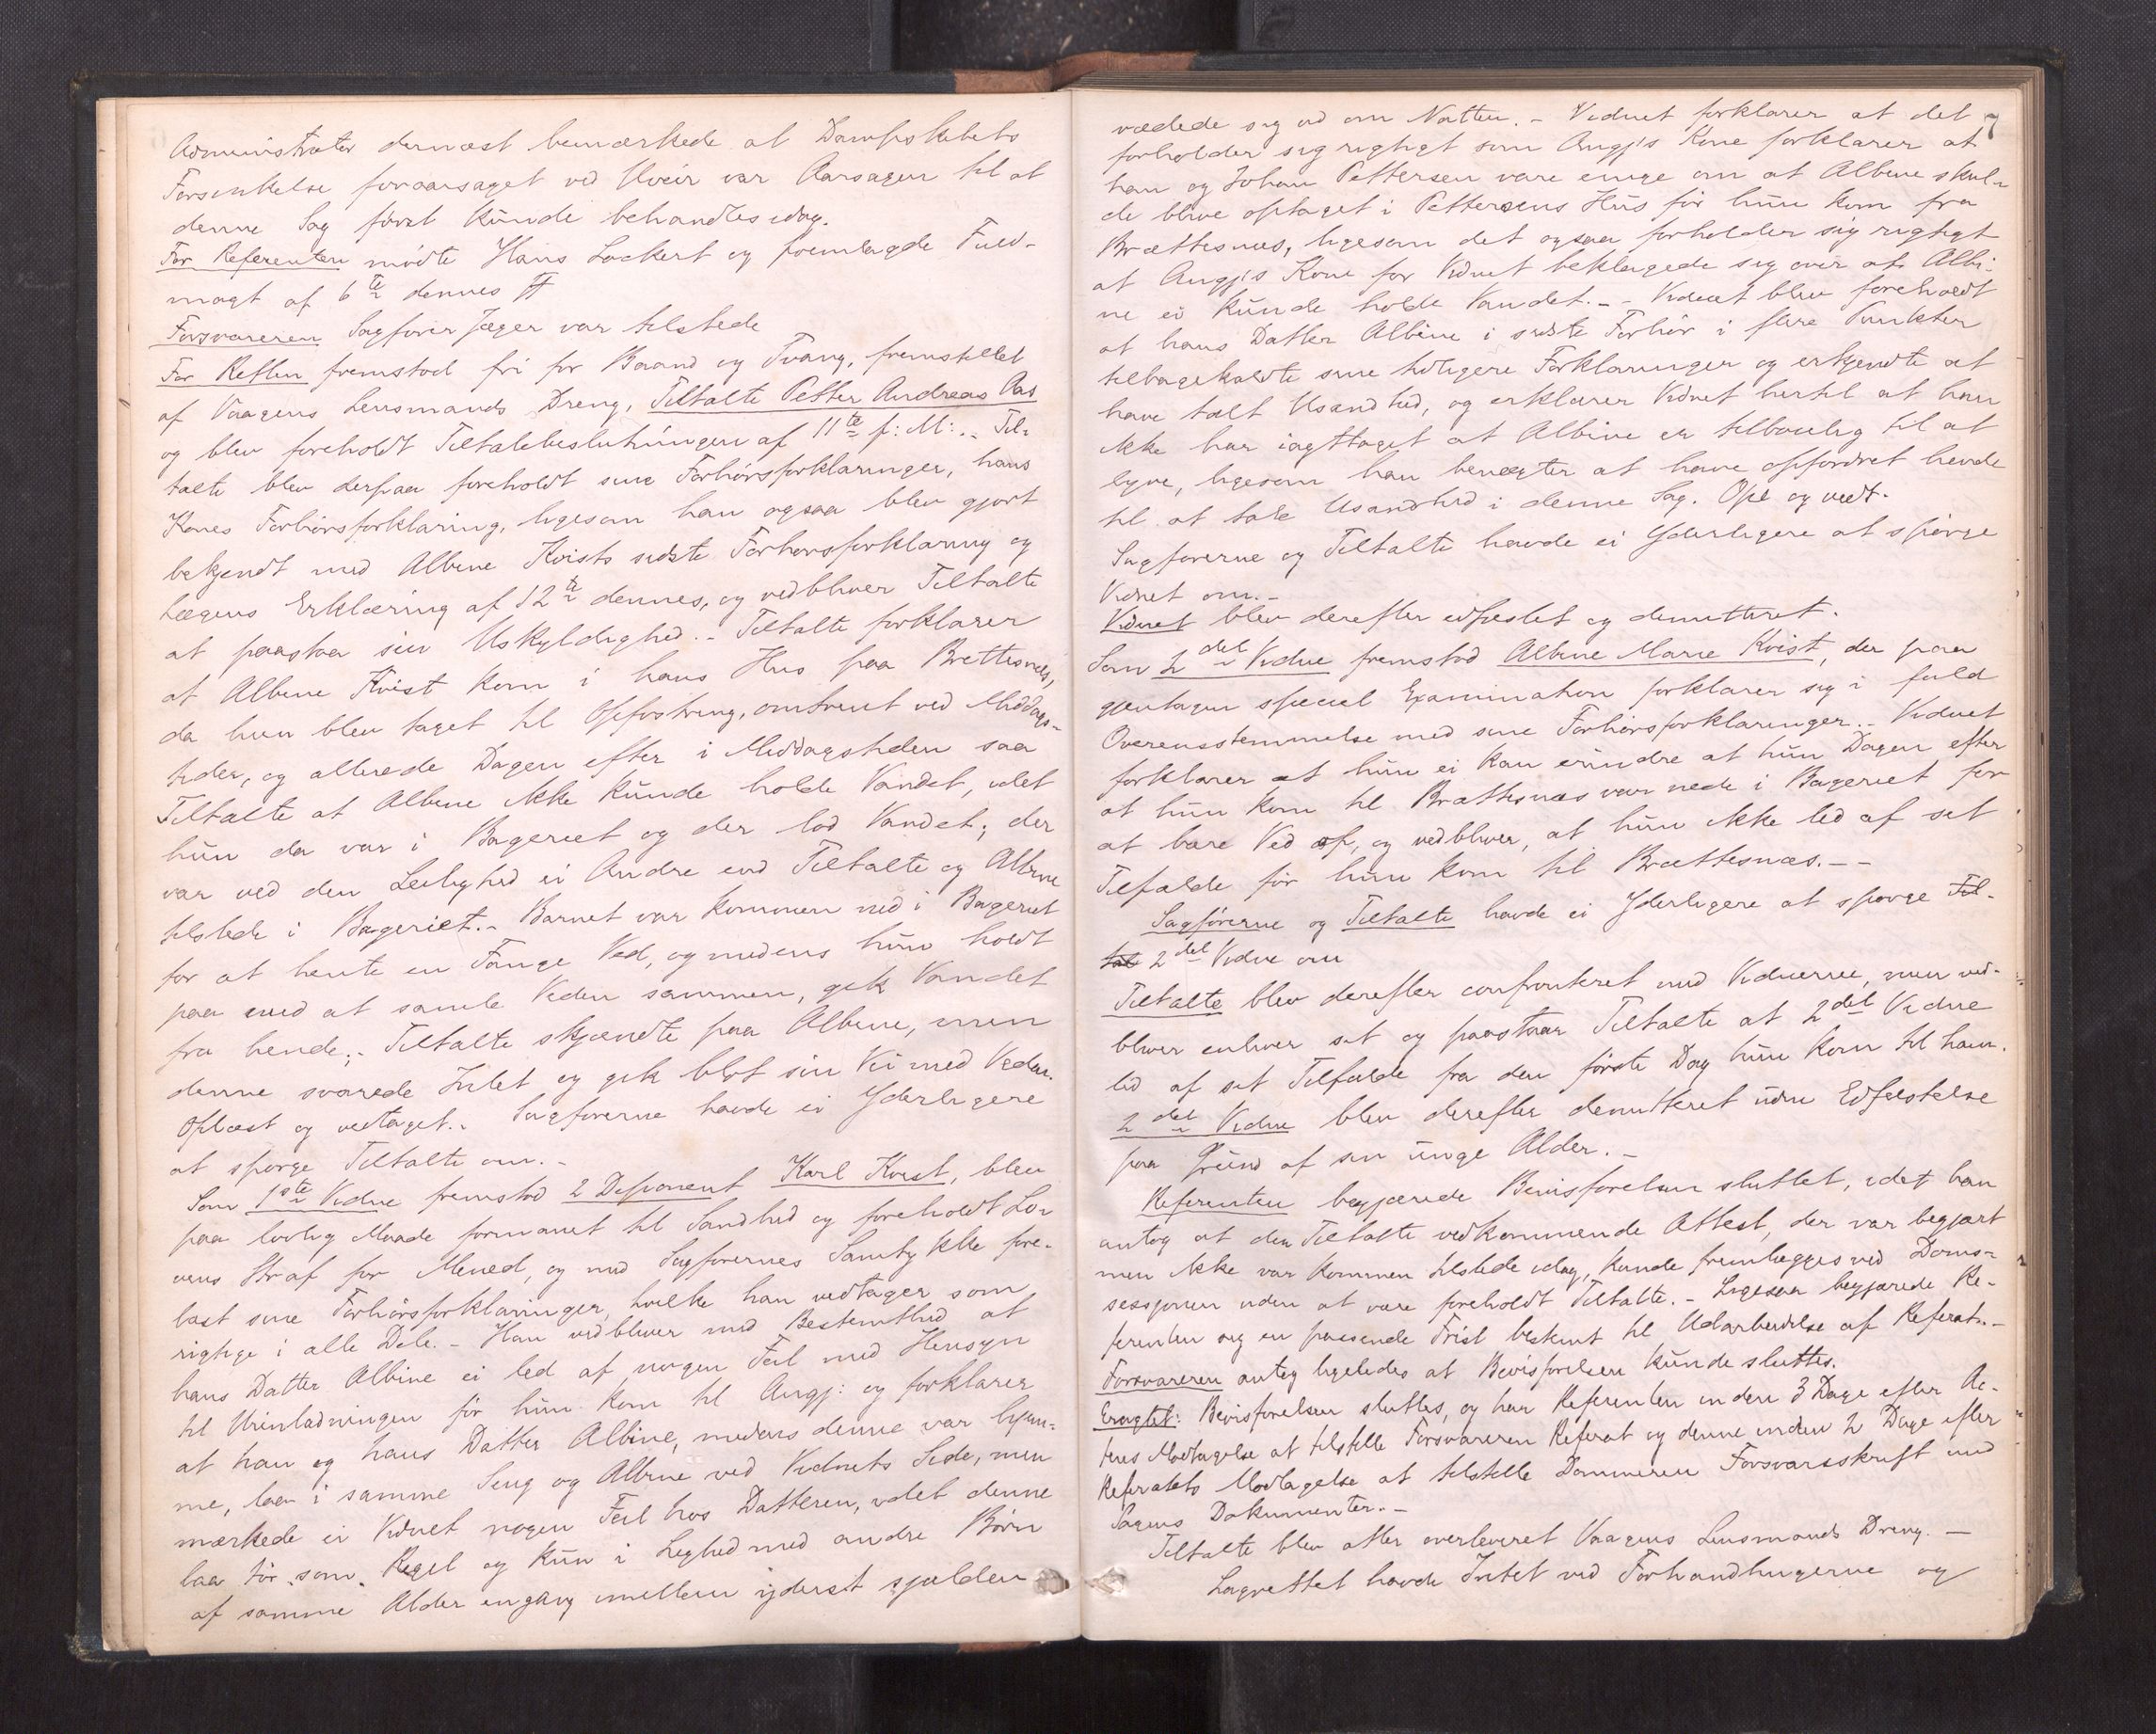 Administrator dernæst bemærkede at Dampskibets
Forsinkelse foraarsaget ved Uveir var Aarsagen til at
denne Sag først kunde behandles idag.
For Referenten mødte Hans Lockert og fremlagde Fuld-
magt af 6te dennes
Forsvareren Sagfører Jæger var tilstede
For Retten fremstod fri for Baand og Tvang, fremstillet
af Vaagens Lensmands Dreng, Tiltalte Petter Andreas Aas
og blev foreholdt Tiltalebeslutningen af 11te f: M:. Til-
talte blev derpaa foreholdt sine Forhørsforklaringer, hans
Kones Forhørsforklaring, ligesom han ogsaa blev gjort
bekjendt med Albine Kvists sidste Forhørsforklaring og
Lægens Erklæring af 12te dennes, og vedbliver Tiltalte
at paastaa sin Uskyldighed. - Tiltalte forklarer
at Albine Kvist kom i hans Hus paa Brettesnæs,
da hun blev taget til Opfostring, omtrent ved Middags-
tider, og allerede Dagen efter i Middagstiden saa
Tiltalte at Albine ikke kunde holde Vandet, idet
hun da var i Bageriet og der lod Vandet; der
var ved den Leilighed ei Andre end Tiltalte og Albine
tilstede i Bageriet. - Barnet var kommen ned i Bageriet
for at hente en Fange Ved, og medens hun holdt
paa med at samle Veden sammen, gik Vandet
fra hende; - Tiltalte skjændte paa Albine, men
denne svarede Intet og gik blot sin Vei med Veden.
Oplæst og vedtaget. - Sagførerne havde ei Yderligere
at spørge Tiltalte om. -
Som 1ste Vidne fremstod 2 Deponent Karl Kvist, blev
paa lovlig Maade formanet til Sandhed og foreholdt Lo-
vens Straf for Mened, og med Sagførernes Samtykke fore-
læst sine Forhørsforklaringer, hvilke han vedtager som
rigtige i alle Dele. - Han vedbliver med Bestemthed at
hans Datter Albine ei led af nogen Feil med Hensyn
til Urinladningen før hun kom til Angj: og forklarer
at han og hans Datter Albine, medens denne var hjem-
me, laa i samme Seng og Albine ved Vidnets Side, men
mærkede ei Vidnet nogen Feil hos Datteren, idet denne
laa tør som Regel og kun i Lighed med andre Børn
af samme Alder engang imellem yderst sjelden
7
vædede sig ud om Natten. - Vidnet forklarer at det
forholder sig rigtigt som Angj's Kone forklarer at
han og Johan Pettersen vare enige om at Albine skul-
de blive optaget i Pettersens Hus før hun kom fra
Brættesnæs, ligesom det ogsaa forholder sig rigtigt
at Angj's Kone for Vidnet beklagede sig over at Albi-
ne ei kunde holde Vandet. - - Vidnet blev foreholdt
at hans Datter Albine i sidste Forhør i flere Punkter
tilbagekaldte sine tidligere Forklaringer og erkjendte at
have talt Usandhed, og erklærer Vidnet hertil at han
ikke har iagttaget at Albine er tilbøielig til at
lyve, ligesom han benegter at have opfordret hende
til at tale Usandhed i denne Sag. Opl og vedt.
Sagførerne og Tiltalte havde ei Yderligere at spørge
Vidnet om. -
Vidnet blev derefter edfæstet og demitteret.
Som 2det Vidne fremstod Albine Marie Kvist, der paa
gjentagen speciel Examination forklarer sig i fuld
Overensstemmelse med sine Forhørsforklaringer. - Vidnet
forklarer at hun ei kan erindre at hun Dagen efter
at hun kom til Brættesnæs var nede i Bageriet for
at bære Ved op, og vedbliver, at hun ikke led af sit
Tilfælde før hun kom til Brættesnæs. - -
Sagførerne og Tiltalte havde ei Yderligere at spørge Til-
tal 2det Vidne om
Tiltalte blev derefter confronteret med Vidnerne, men ved-
bliver enhver sit og paastaar Tiltalte at 2det Vidne
led af sit Tilfælde fra den første Dag hun kom til ham.
2det Vidne blev derefter demitteret uden Edfæstelse
paa Grund af sin unge Alder. -
Referenten begjærede Bevisførelsen sluttet, idet han
antog at den Tiltalte vedkommende Attest, der var begjært
men ikke var kommen tilstede idag, kunde fremlægges ved Doms-
sessionen uden at være foreholdt Tiltalte. - Ligesaa begjærede Re-
ferenten sig en passende Frist bestemt til Udarbeidelse af Referat. -
Forsvareren antog ligeledes at Bevisførelsen kunde sluttes.
Eragtet: Bevisførelsen sluttes, og har Referenten inden 3 Dage efter Ac-
tens Modtagelse at tilstille Forsvareren Referat og denne inden 2 Dage efter
Referatets Modtagelse at tilstille Dommeren Forsvarsskrift med
Sagens Dokumenter. -
Tiltalte blev atter overleveret Vaagens Lensmands Dreng. -
Lagrettet havde Intet ved Forhandlingerne og